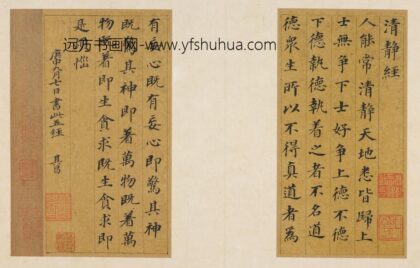 清静经
人能常清静天地悉皆歸上
士無争下士好争上德不德
下德執德執着之者不名道
德眾生所以不得真道者為
有妄心既有妄心即驚其神
既驚其神即着萬物既着萬
物即生貪求既生貪求即
是煩惱
九月七日書此五經
其昌
远方书画网-www.yfshuhua.com